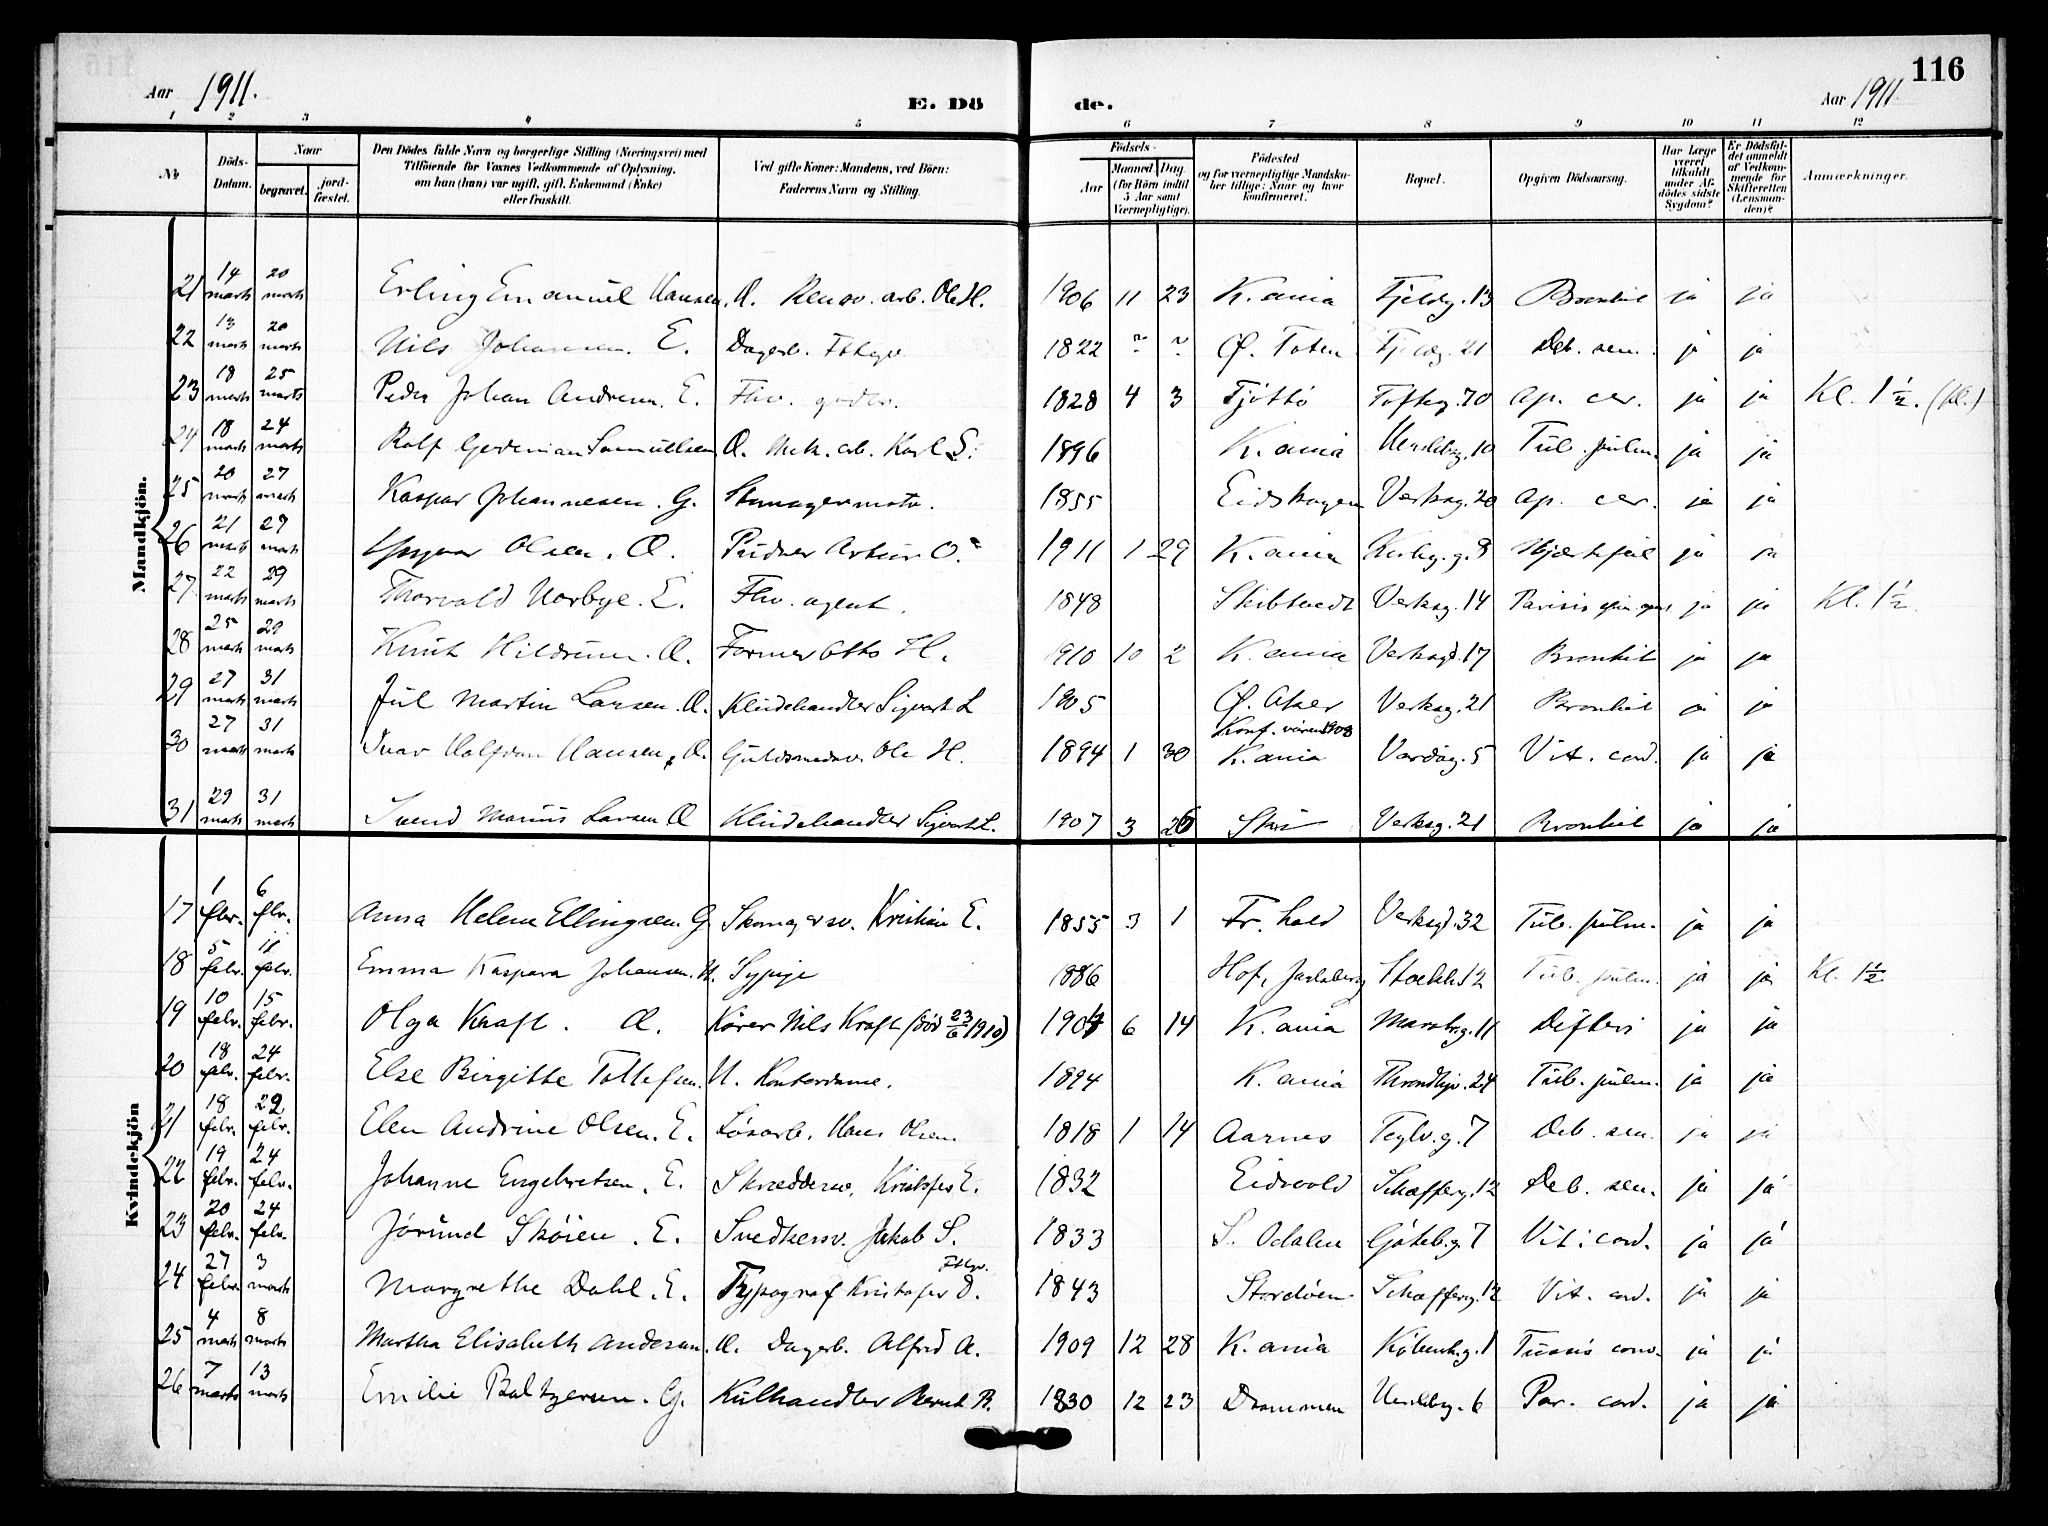 116
Aar 1911.
E. Dö de.
Aar 1911.
1 2 3 4 5 6 7 8 9 10 11 12
No
Döds-Datum.
Naar
begravet.
jord-fæstet.
Den Dödes fulde Navn og borgerlige Stilling (Næringsvei) med
Tilföiende for Voxnes Vedkommende af Oplysning,
om han (hun) var ugift, gift, Enkemand (Enke)
eller fraskilt.
Ved gifte Koner: Mandens, ved Börn:
Faderens Navn og Stilling.
Födsels-
Aar
Maaned
Dag
(for Börn indtil
5 Aar samt
Værnepligtige).
Födested
og for værnepligtige Mandska-
ber tillige: Naar og hvor
konfirmeret.
Bopæl.
Opgiven Dödsaarsag.
Har Læge
været
tilkaldt
under Af-
dödes sidste
Sygdom?
Er Dödsfal-
det anmeldt
af Vedkom-
mende for
Skifteretten
(Lensman-
den)?
Anmærkninger.
Mandkjön.
21 14 marts 20 marts Erling Emanuel Hansen. Æ. Rensv. arb. Ole H. 1906 11 23 K.ania Fjeldg. 13 Bronkit ja ja
22 13 marts 20 marts Nils Johansen. E. Dagarb. Fthgv. 1822 ? ? Ø. Toten Fjeldg. 21 Deb. sen. ja ja
23 18 marts 25 marts Peder Johan Andresen. E. Fhv. 1828 4 3 Tjöttö Tofteg. 70 Ap. cer. ja ja Kl. 1½. (kl.)
24 18 marts 24 marts Rolf Samuelsen Æ. Mek. arb. Karl S. 1896 K.ania 10 Tub. pulm. ja ja
25 20 marts 27 marts Kaspar Johannesen. G. Skomagermstr. 1855 Eidskogen Verksg. 20 Ap. cer. ja ja
26 21 marts 27 marts Olsen. Æ. Pudser Artur O. 1911 1 29 K.ania g. 8 Hjærtefeil ja ja
27 22 marts 29 marts Thorvald Norbye. E. Fhv. agent. 1848 Skibtvedt Verksg. 14 ja ja Kl. 1½.
28 25 marts 29 marts Knut Hildrum. Æ. Former Otto H. 1910 10 2 K.ania Verksgd. 17 Bronkit ja ja
29 27 marts 31 marts Jul Martin Larsen. Æ. Kludehandler Sigvart L 1905 Ø. Aker Verksg. 21 Bronkit ja ja
30 27 marts 31 marts Ivar Halfdan Hansen. Æ. Guldsmedsv. Ole H. 1894 1 30 Konf. våren 1908 K.ania Vardög. 5 Vit. cord. ja ja
31 29 marts 31 marts Svend Marius Larsen Æ Kludehandler Sigvart L. 1907 3 26 Ski Verksg. 21 Bronkit ja ja
Kvindekjön
17 1 febr. 6 febr. Anna Helene Ellingsen. G. Skomagersv. Kristian E. 1855 3 1 Fr. hald Verksgd. 32 Tub. pulm. ja ja
18 5 febr. 11 febr. Emma Kaspara Johansen. U. Sypige 1886 Hof, Jarlsberg Stockh. 12 Tub. pulm. ja ja Kl. 1½
19 10 febr. 15 febr. Olga Kraft. Æ. Kører Nils Kraft (død 23/6 1910) 1904 6 14 K.ania g. 11 Difteri ja ja
20 18 febr. 24 febr. Else Birgitte Tollefsen. U. Kontordame. 1894 K.ania Throndhjv. 24 Tub. pulm. ja ja
21 18 febr. 22 febr. Elen Andrine Olsen. E. Løsarb. Hans Olsen. 1818 1 14 Aarnes Teglv.g. 7 Deb. sen. ja ja
22 19 febr. 24 febr. Johanne Engebretsen. E. Skræddersv. Kristofer E. 1832 Eidsvold Schæfferg. 12 Deb. sen. ja ja
23 20 febr. 24 febr. Jørund Skøien. E. Snedkersv. Jakob S. 1833 S. Odalen Göteb.g. 7 Vit. cord. ja ja
24 27 febr. 3 marts Margrethe Dahl. E. Typograf Kristofer D. Fthgv. 1843 Stordøen Schæfferg. 12 Vit. cord. ja ja
25 4 marts 8 marts Martha Elisabeth Andersen. Æ. Dagarb. Alfred A. 1909 12 28 K.ania Köbenh.g. 1 Tussis conv. ja ja
26 7 marts 13 marts Emilie Baltzersen. G. Kulhandler Bernt B. 1830 12 23 Drammen 6 Par. cord. ja ja